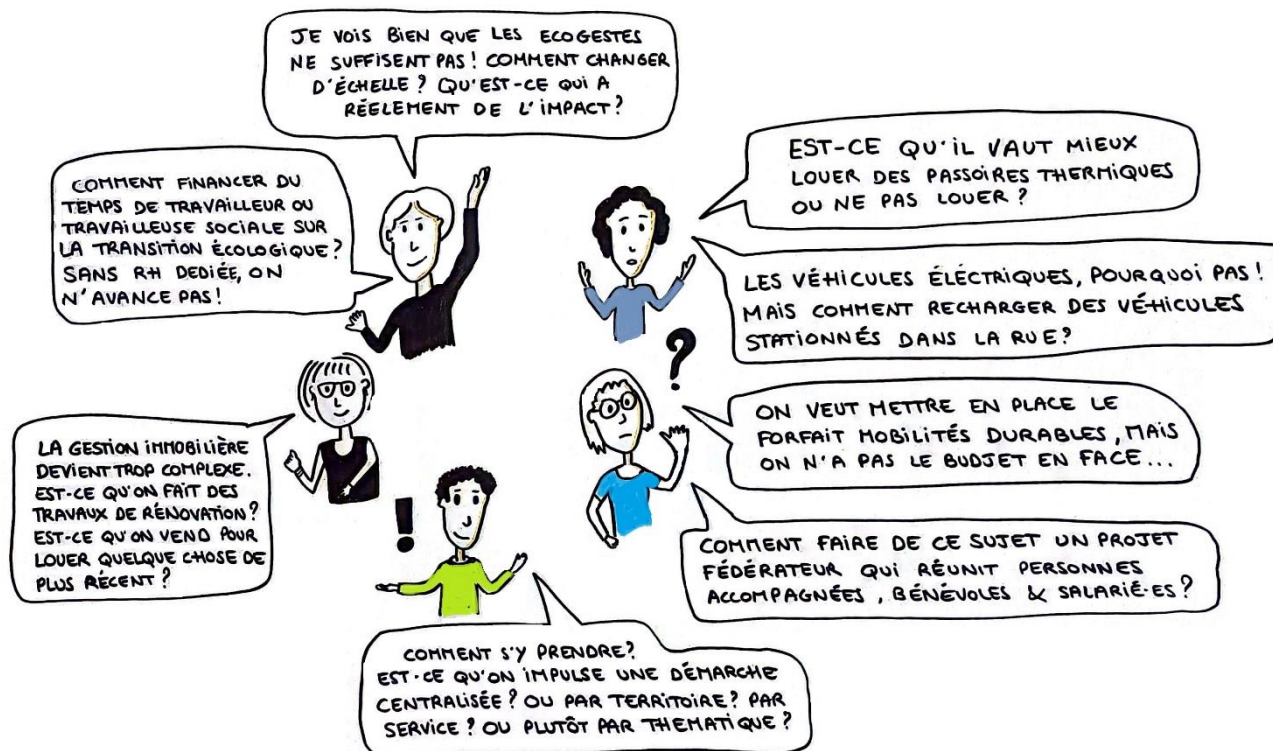 JE VOIS BIEN QUE LES ECOGESTES
NE SUFFISENT PAS ! COMMENT CHANGER
D'ÉCHELLE ? QU'EST-CE QUI A
RÉELEMENT DE L'IMPACT ?
COMMENT FINANCER DU
TEMPS DE TRAVAILLEUR OU
TRAVAILLEUSE SOCIALE SUR
LA TRANSITION ÉCOLOGIQUE ?
SANS RH DEDIÉE, ON
N'AVANCE PAS !
EST-CE QU'IL VAUT MIEUX
LOUER DES PASSOIRES THERMIQUES
OU NE PAS LOUER ?
LES VÉHICULES ÉLECTRIQUES, POURQUOI PAS !
MAIS COMMENT RECHARGER DES VÉHICULES
STATIONNÉS DANS LA RUE ?
LA GESTION IMMOBILIÈRE
DEVIENT TROP COMPLEXE.
EST-CE QU'ON FAIT DES
TRAVAUX DE RÉNOVATION ?
EST-CE QU'ON VEND POUR
LOUER QUELQUE CHOSE DE
PLUS RÉCENT ?
?
ON VEUT METTRE EN PLACE LE
FORFAIT MOBILITÉS DURABLES, MAIS
ON N'A PAS LE BUDGET EN FACE...
COMMENT FAIRE DE CE SUJET UN PROJET
FÉDÉRATEUR QUI RÉUNIT PERSONNES
ACCOMPAGNÉES, BÉNÉVOLES & SALARIÉ·ES ?
!
COMMENT S'Y PRENDRE ?
EST-CE QU'ON IMPULSE UNE DÉMARCHE
CENTRALISÉE ? OU PAR TERRITOIRE ? PAR
SERVICE ? OU PLUTÔT PAR THEMATIQUE ?